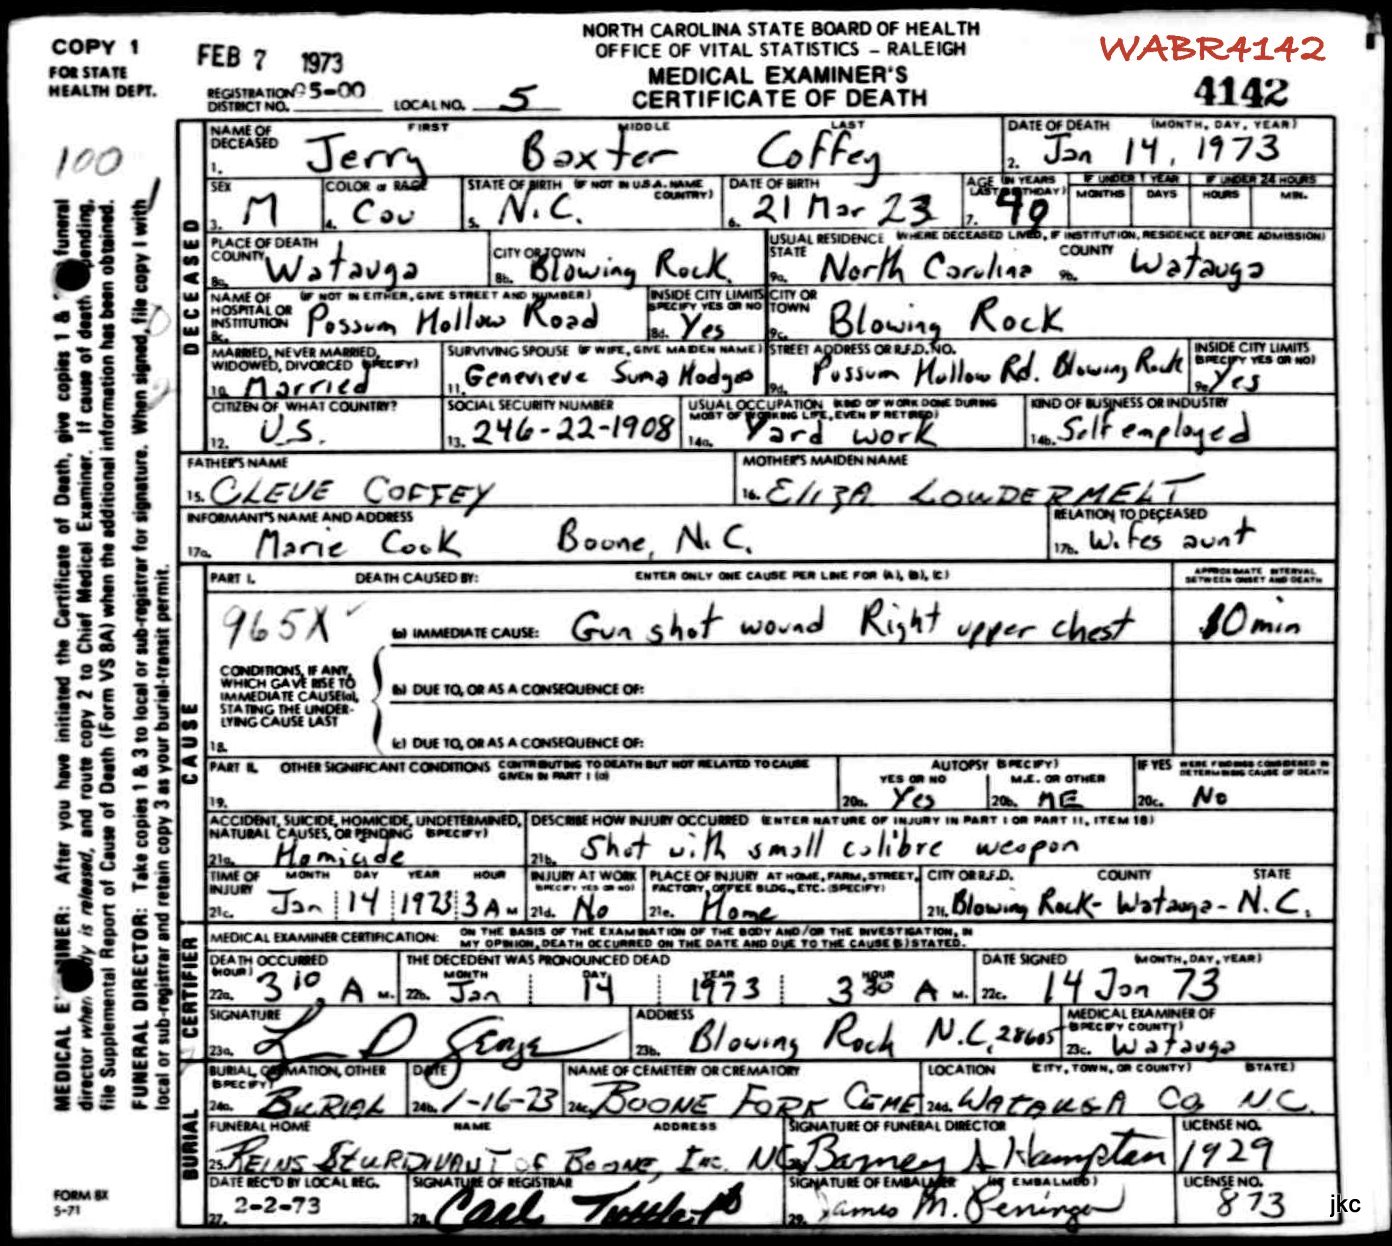 COPY 1
FOR STATE
HEALTH DEPT.
FEB 7 1973
NORTH CAROLINA STATE BOARD OF HEALTH
OFFICE OF VITAL STATISTICS – RALEIGH
MEDICAL EXAMINER'S
CERTIFICATE OF DEATH
WABR4142
4142
REGISTRATION DISTRICT NO. 95-00 LOCAL NO. 5
100
NAME OF DECEASED FIRST MIDDLE LAST
1. Jerry Baxter Coffey
DATE OF DEATH (MONTH, DAY, YEAR)
2. Jan 14, 1973
SEX
3. M
COLOR OR RACE
4. Cau
STATE OF BIRTH (IF NOT IN U.S.A. NAME COUNTRY)
5. N.C.
DATE OF BIRTH
6. 21 Mar 23
AGE (IN YEARS LAST BIRTHDAY)
7. 49
IF UNDER 1 YEAR
MONTHS DAYS
IF UNDER 24 HOURS
HOURS MIN.
DECEASED
PLACE OF DEATH
COUNTY
8a. Watauga
CITY OR TOWN
8b. Blowing Rock
USUAL RESIDENCE (WHERE DECEASED LIVED, IF INSTITUTION, RESIDENCE BEFORE ADMISSION)
STATE
9a. North Carolina
COUNTY
9b. Watauga
NAME OF HOSPITAL OR INSTITUTION (IF NOT IN EITHER, GIVE STREET AND NUMBER)
8c. Possum Hollow Road
INSIDE CITY LIMITS (SPECIFY YES OR NO)
8d. Yes
CITY OR TOWN
9c. Blowing Rock
MARRIED, NEVER MARRIED, WIDOWED, DIVORCED (SPECIFY)
10. Married
SURVIVING SPOUSE (IF WIFE, GIVE MAIDEN NAME)
11. Genevieve Suma Hodges
STREET ADDRESS OR R.F.D. NO.
9d. Possum Hollow Rd. Blowing Rock
INSIDE CITY LIMITS (SPECIFY YES OR NO)
9e. Yes
CITIZEN OF WHAT COUNTRY?
12. U.S.
SOCIAL SECURITY NUMBER
13. 246-22-1908
USUAL OCCUPATION (KIND OF WORK DONE DURING MOST OF WORKING LIFE, EVEN IF RETIRED)
14a. Yard work
KIND OF BUSINESS OR INDUSTRY
14b. Self employed
FATHER'S NAME
15. CLEVE COFFEY
MOTHER'S MAIDEN NAME
16. ELIZA LOWDERMELT
INFORMANT'S NAME AND ADDRESS
17a. Marie Cook Boone, N.C.
RELATION TO DECEASED
17b. Wifes aunt
CAUSE
PART I. DEATH CAUSED BY: ENTER ONLY ONE CAUSE PER LINE FOR (A), (B), (C)
APPROXIMATE INTERVAL BETWEEN ONSET AND DEATH
965X
(a) IMMEDIATE CAUSE: Gun shot wound Right upper chest 10 min
CONDITIONS, IF ANY, WHICH GAVE RISE TO IMMEDIATE CAUSE(a), STATING THE UNDERLYING CAUSE LAST
(b) DUE TO, OR AS A CONSEQUENCE OF:
18. (c) DUE TO, OR AS A CONSEQUENCE OF:
PART II. OTHER SIGNIFICANT CONDITIONS CONTRIBUTING TO DEATH BUT NOT RELATED TO CAUSE GIVEN IN PART I (a)
19.
AUTOPSY (SPECIFY)
YES OR NO
20a. Yes
M.E. OR OTHER
20b. ME
IF YES WERE FINDINGS CONSIDERED IN DETERMINING CAUSE OF DEATH
20c. No
ACCIDENT, SUICIDE, HOMICIDE, UNDETERMINED, NATURAL CAUSES, OR PENDING (SPECIFY)
21a. Homicide
DESCRIBE HOW INJURY OCCURRED (ENTER NATURE OF INJURY IN PART I OR PART II, ITEM 18)
21b. Shot with small calibre weapon
TIME OF INJURY MONTH DAY YEAR HOUR
21c. Jan 14 1973 3 A M
INJURY AT WORK (SPECIFY YES OR NO)
21d. No
PLACE OF INJURY AT HOME, FARM, STREET, FACTORY, OFFICE BLDG., ETC. (SPECIFY)
21e. Home
CITY OR R.F.D. COUNTY STATE
21f. Blowing Rock - Watauga - N.C.
CERTIFIER
MEDICAL EXAMINER CERTIFICATION: ON THE BASIS OF THE EXAMINATION OF THE BODY AND/OR THE INVESTIGATION, IN MY OPINION, DEATH OCCURRED ON THE DATE AND DUE TO THE CAUSE(S) STATED.
DEATH OCCURRED (HOUR)
22a. 3 10, A M.
THE DECEDENT WAS PRONOUNCED DEAD
MONTH DAY YEAR HOUR
22b. Jan 14 1973 3 30 A M.
DATE SIGNED (MONTH, DAY, YEAR)
22c. 14 Jan 73
SIGNATURE
23a.
ADDRESS
23b. Blowing Rock N.C. 28605
MEDICAL EXAMINER OF (SPECIFY COUNTY)
23c. Watauga
BURIAL
BURIAL, CREMATION, OTHER (SPECIFY)
24a. BURIAL
DATE
24b. 1-16-73
NAME OF CEMETERY OR CREMATORY
24c. BOONE FORK CEME
LOCATION (CITY, TOWN, OR COUNTY) (STATE)
24d. WATAUGA CO. N.C.
FUNERAL HOME NAME ADDRESS
25. REINS STURDIVANT OF BOONE, INC. NC
SIGNATURE OF FUNERAL DIRECTOR
Barney A Hampton
LICENSE NO.
1929
DATE REC'D BY LOCAL REG.
27. 2-2-73
SIGNATURE OF REGISTRAR
28. Carl
SIGNATURE OF EMBALMER (IF EMBALMED)
29. James M. Penninger
LICENSE NO.
873
FORM 8X
5-71
jkc
MEDICAL EXAMINER: After you have initiated the Certificate of Death, give copies 1 & funeral
director when body is released, and route copy 2 to Chief Medical Examiner. If cause of death pending,
file Supplemental Report of Cause of Death (Form VS 8A) when the additional information has been obtained.
FUNERAL DIRECTOR: Take copies 1 & 3 to local or sub-registrar for signature. When signed, file copy 1 with
local or sub-registrar and retain copy 3 as your burial-transit permit.